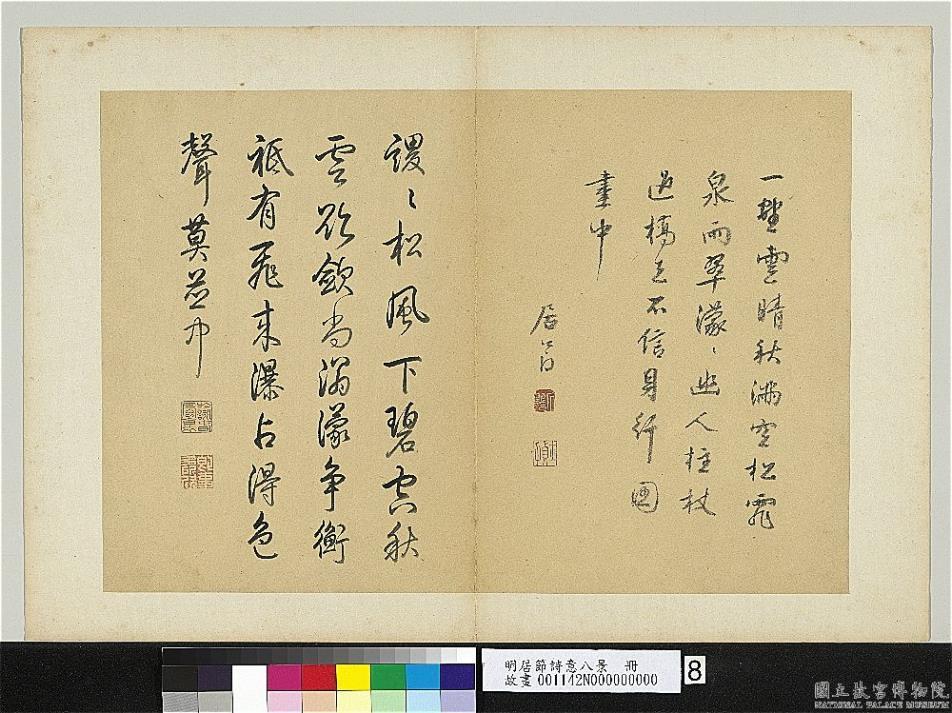 一壑雲晴秋滿空松霏
泉雨翠濛〻幽人柱杖
過橋去不信身行圖
畫中
居節
謖〻松風下碧空秋
雲欲斂尚溟濛爭衡
祗有飛來瀑占得色
聲莫並中
明居節詩意八景 冊
故畫 001142N000000000
8
國立故宮博物院
NATIONAL PALACE MUSEUM